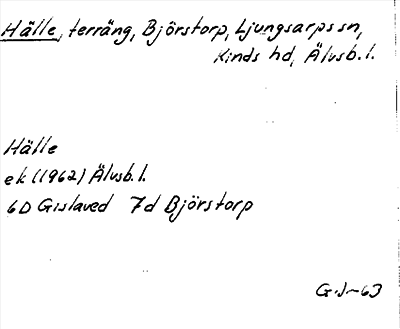 Hälle, terräng, Björstorp, Ljungsarps sn,
Kinds hd, Älvsb. l.
Hälle
ek (1962) Älvsb. l.
6D Gislaved 7d Björstorp
G.J-63